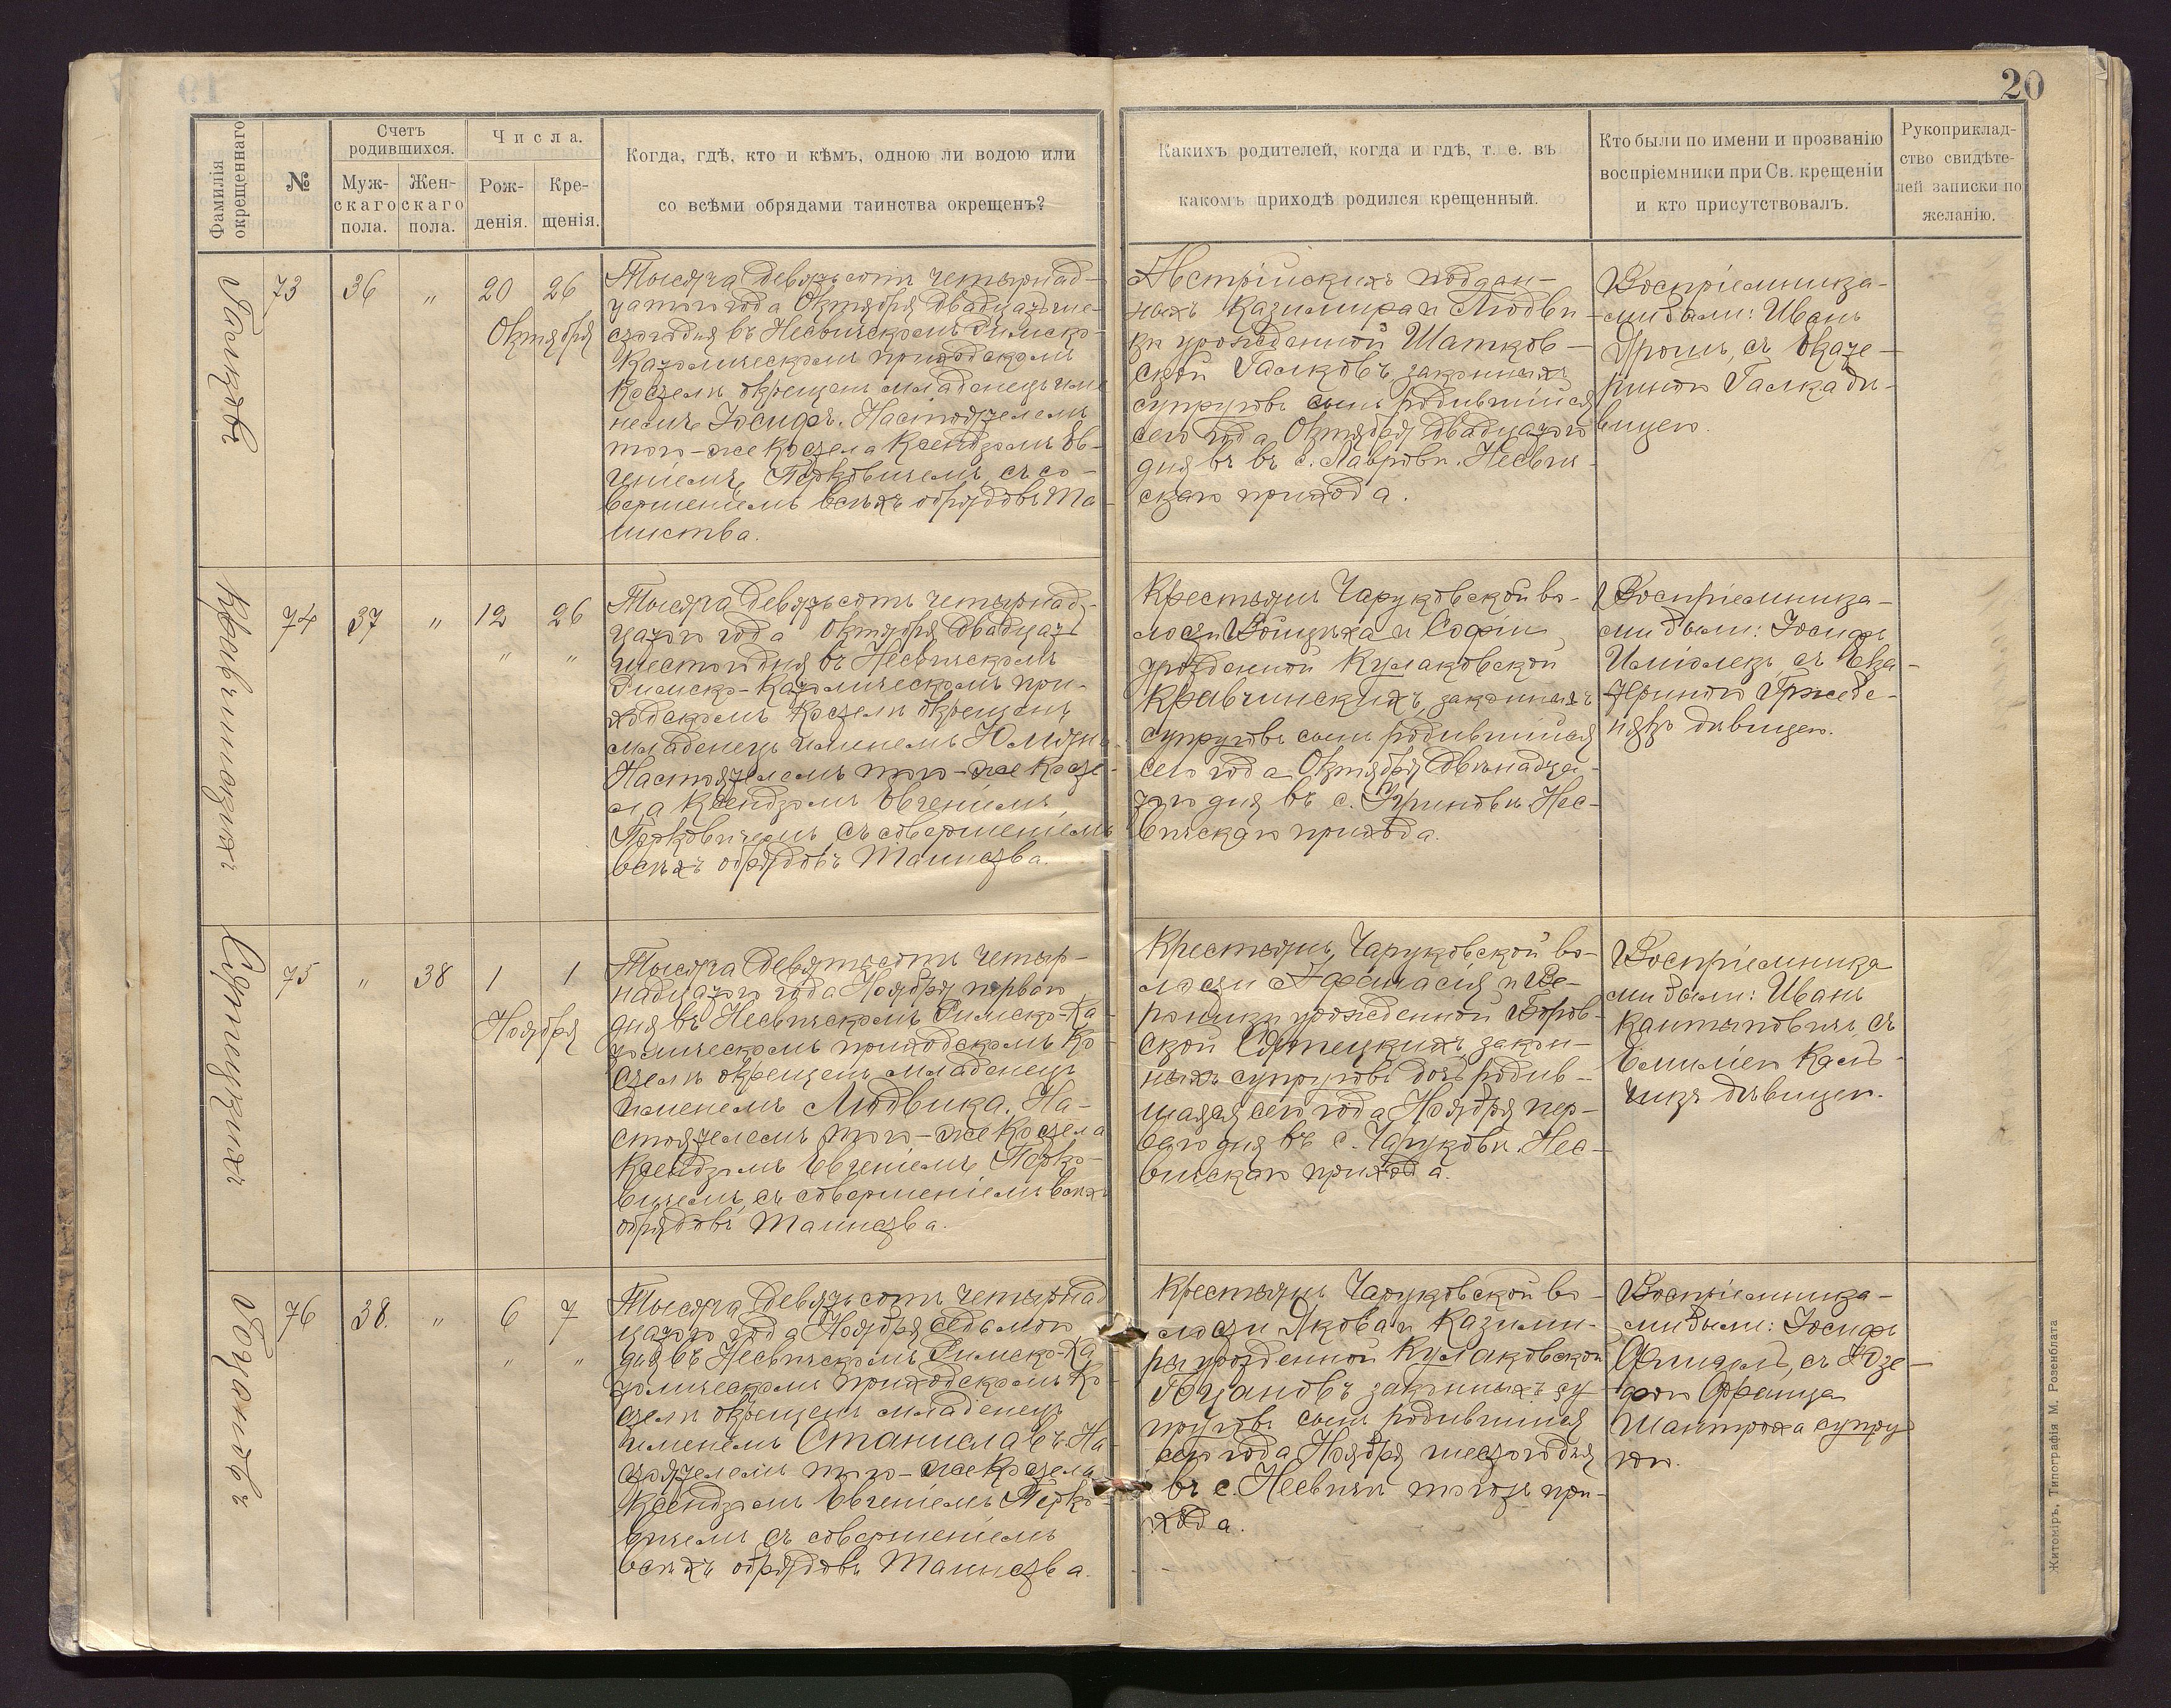 20
Фамилія окрещеннаго
№
Счетъ родившихся.
Муж-
скаго
пола.
Жен-
скаго
пола.
Числа.
Рож-
денія.
Кре-
щенія.
Когда, гдѣ, кто и кѣмъ, одною ли водою или
со всѣми обрядами таинства окрещенъ?
Какихъ родителей, когда и гдѣ, т. е. въ
какомъ приходѣ родился крещенный.
Кто были по имени и прозванію
воспріемники при Св. крещеніи
и кто присутствовалъ.
Рукоприклад-
ство свидѣте-
лей записки по
желанію.
Галковъ
73
36
"
20
26
Октября
Тысяча девятьсотъ четырнад-
цатого года Октября двадцатше-
стого дня въ Несвичскомъ Римско-
Католическомъ приходскомъ
Костелѣ окрещенъ младенецъ име-
немъ Іосифъ. Настоятелемъ
того-же Костела Ксендзомъ Ев-
геніемъ Перковичемъ, съ со-
вершеніемъ всѣхъ обрядовъ Та-
инства.
Австрійскихъ поддан-
ныхъ Казимира и Людви-
ки урожденной Шатков-
ской Галковъ законныхъ
супруговъ сынъ родившійся
сего года Октября двадцатого
дня въ въ с. Лавровѣ. Несвич-
скаго прихода.
Воспріемника-
ми были: Иванъ
съ Екате-
риною Галка дѣ-
вицею.
Кравчинскихъ
74
37
"
12
26
" "
Тысяча девятьсотъ четырнад-
цатого года Октября двадцат
шестого дня въ Несвичскомъ
Римско-Католическомъ при-
ходскомъ Костелѣ окрещенъ
младенецъ именемъ Юліянъ
Настоятелемъ того-же Косте-
ла Ксендзомъ Евгеніемъ
Перковичемъ, съ совершеніемъ
всѣхъ обрядовъ Таинства.
Крестьянъ Чаруковской во-
лости Войцѣха и Софіи
урожденной Кулаковской
Кравчинскихъ, законныхъ
супруговъ сынъ родившійся
сего года Октября двѣнадца-
того дня въ с. Нес-
вичскаго прихода.
Воспріемника-
ми были: Іосифъ
съ Ека-
териною
дѣвицею.
Сятецкихъ
75
"
38
1
1
Ноября
Тысяча девятьсотъ четыр-
надцатого года Ноября первого
дня въ Несвичскомъ Римско-Ка
толическомъ приходскомъ Ко-
стелѣ окрещенъ младенецъ
именемъ Людвика. На-
стоятелемъ того-же Костела
Ксендзомъ Евгеніемъ Перко-
вичемъ, съ совершеніемъ всѣхъ
обрядовъ Таинства.
Крестьянъ, Чаруковской во-
лости Афанасія и Ве-
роники урожденной Боров-
ской Сятецкихъ, закон-
ныхъ супруговъ дочь родив-
шаяся сего года Ноября пер-
вого дня въ с. Чаруковѣ. Нес-
вичскаго прихода.
Воспріемника
ми были: Иванъ
съ
Емиліею
дѣвицею.
Гоцановъ
76
38.
"
6
7
" "
Тысяча девятьсотъ четырнад
цатого года Ноября седьмого
дня въ Несвичскомъ Римско-Ка
толическомъ приходскомъ Ко-
стелѣ окрещенъ младенецъ
именемъ Станиславъ. На-
стоятелемъ того-же Костела
Ксендзомъ Евгеніемъ Перко-
вичемъ съ совершеніемъ
всѣхъ обрядовъ Таинства.
Крестьянъ Чаруковской во-
лости Якова и Казими-
ры урожденной Кулаковской
Гоцановъ законныхъ су-
пруговъ сынъ родившійся
сего года Ноября шестого дня
въ с. Несвичѣ того-жъ при-
хода.
Воспріемника-
ми были: Іосифъ
съ Юзе-
фою Франца
Шантроха супру
гою.
Житоміръ, Типографія М. Розенблата